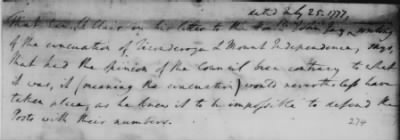 dated July 25. 1777,
That Genl St Clair in his letter to the Honble John Jay
of the evacuation of Ticonderoga & Mount Independence, says,
that had the opinion of the Council been contrary to what
it was, it (meaning the evacuation) would nevertheless have
taken place, as he knew it to be impossible to defend the
Posts with their numbers.
274